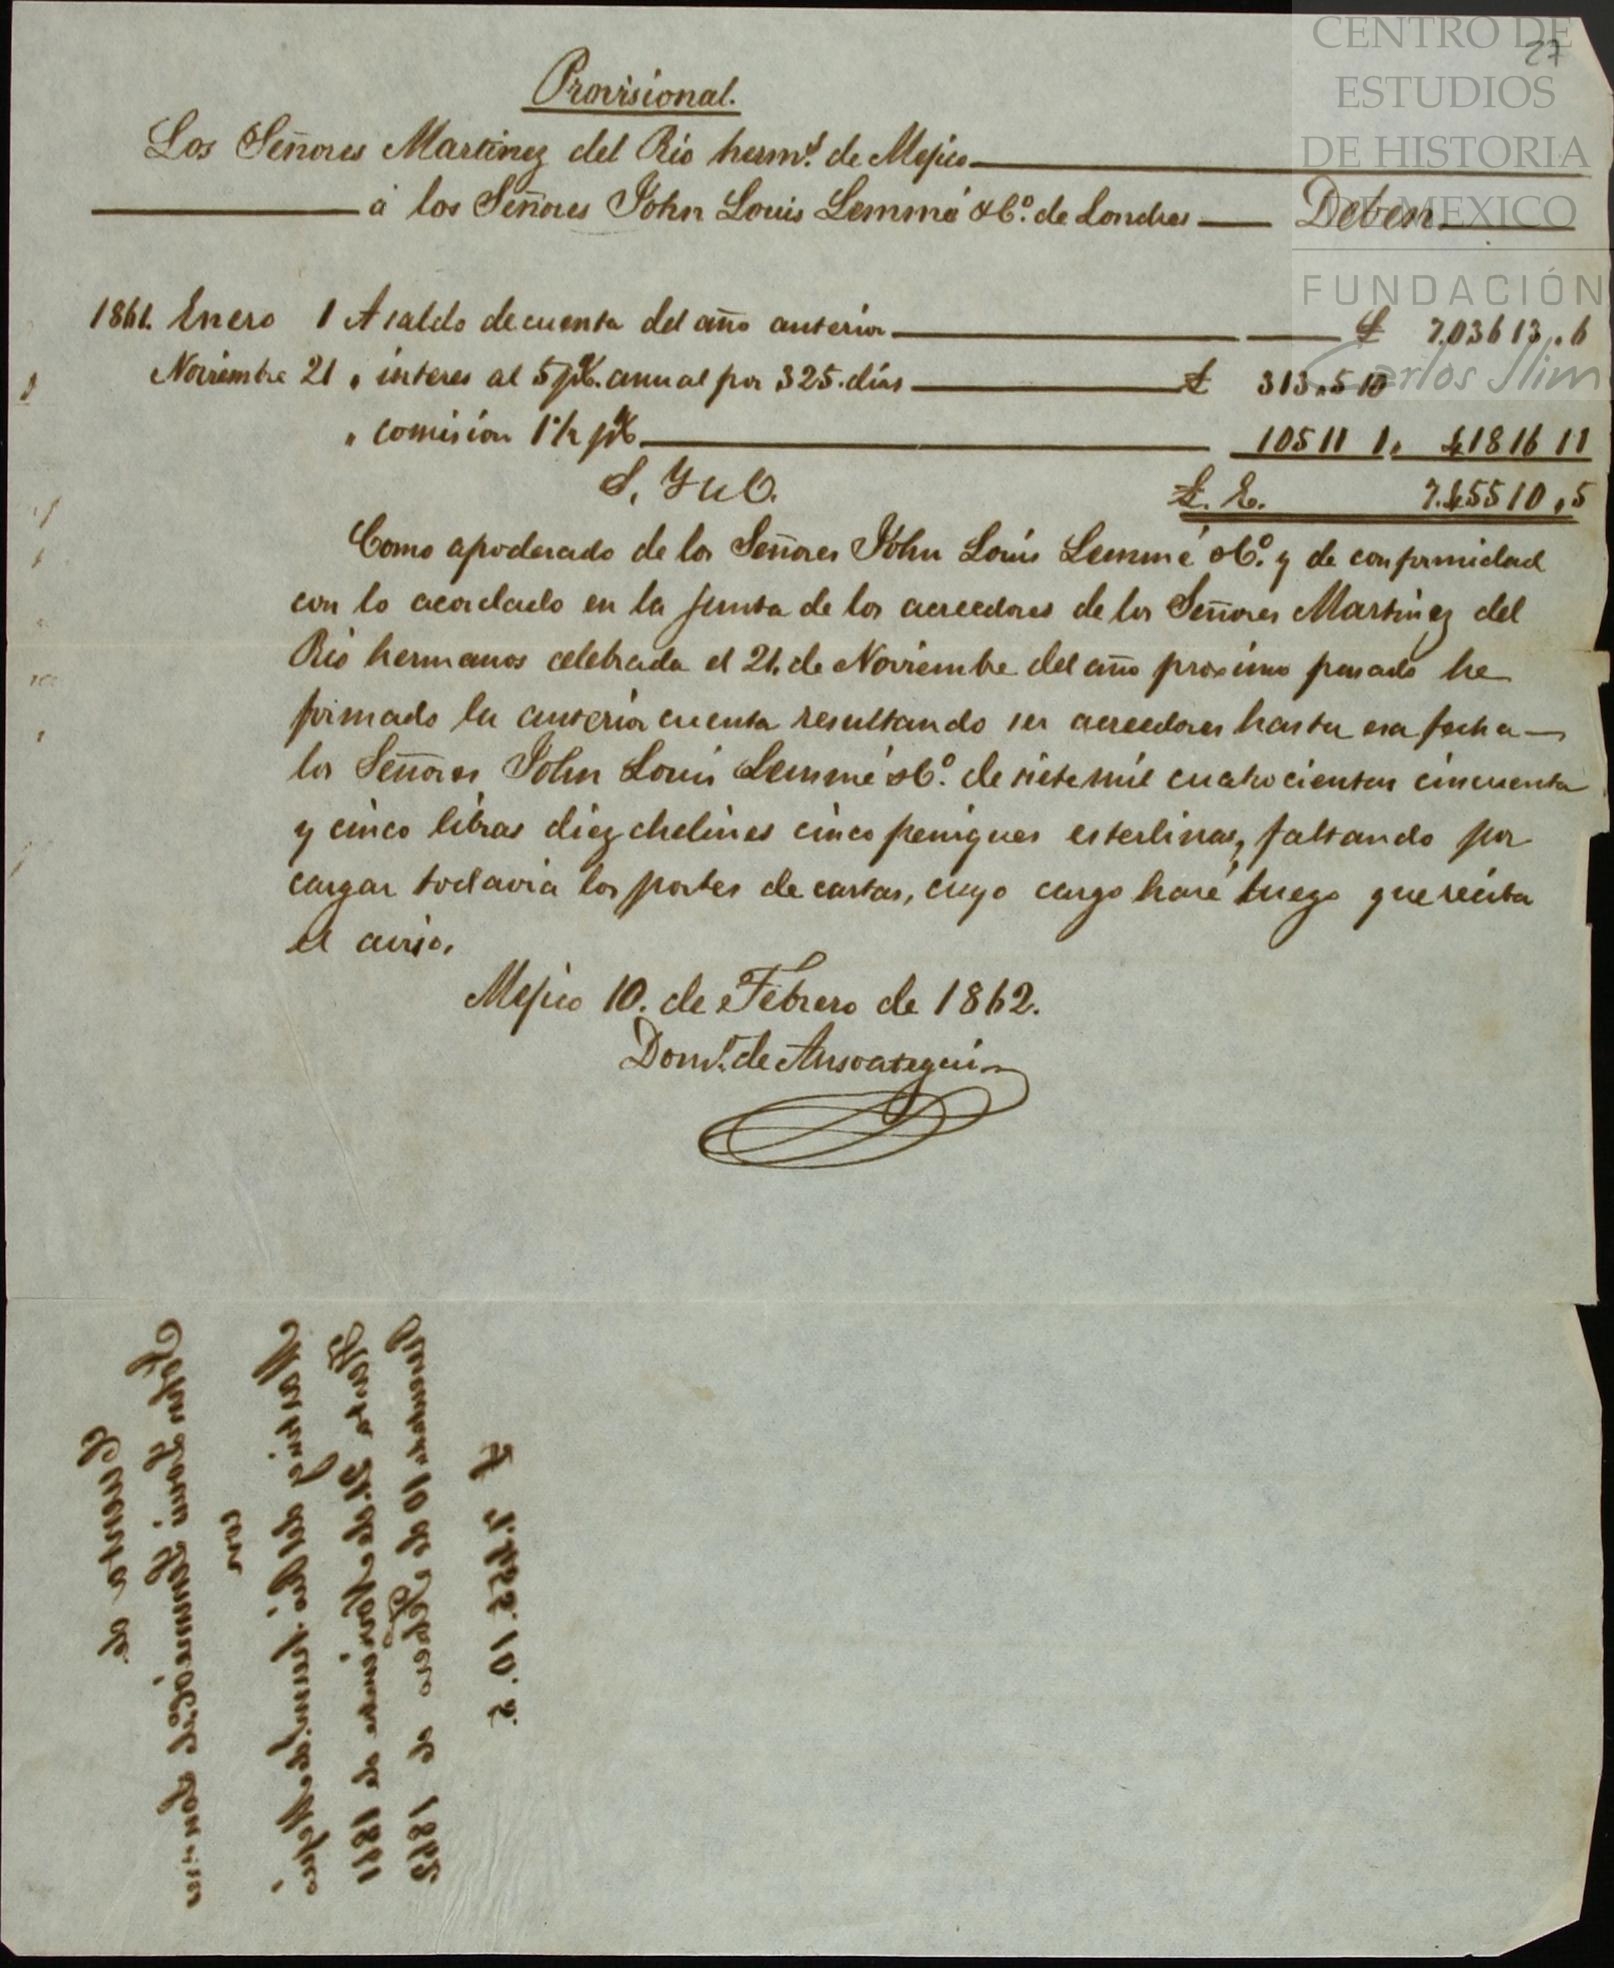 CENTRO DE
ESTUDIOS
DE HISTORIA
DE MEXICO
FUNDACIÓN
Carlos Slim
27
Provisional.
Los Señores Martinez del Rio hermˢ. de Mejico
á los Señores John Louis Lemmé &Cº. de Londres Deben
1861. Enero 1 A saldo de cuenta del año anterior £ 7.036 13 „ 6
Noviembre 21 „ interes al 5 p%. anual por 325. dias £ 313 „ 5 10
„ comision 1½ p% 105 11 1 „ 418 16 11
S. Y u O. £. E. 7.455 10 „ 5
Como apoderado de los Señores John Louis Lemmé &Cº. y de conformidad
con lo acordado en la junta de los acreedores de los Señores Martinez del
Rio hermanos celebrada el 21. de Noviembre del año proximo pasado he
formado la anterior cuenta resultando ser acreedores hasta esa fecha
los Señores John Louis Lemmé &Cº. de siete mil cuatrocientas cincuenta
y cinco libras diez chelines cinco peniques esterlinas, faltando por
cargar todavia los portes de cartas, cuyo cargo haré luego que reciba
el aviso.
Mejico 10. de Febrero de 1862.
Domᵒ. de Ansoategui
Cuenta de
John Louis Lemmé &Cº. de Londres
con
Martinez del Rio hermˢ. de Mejico
Hasta 21. de Noviembre de 1861
10 de Febrero de 1862
£ 7.455. 10. 5.